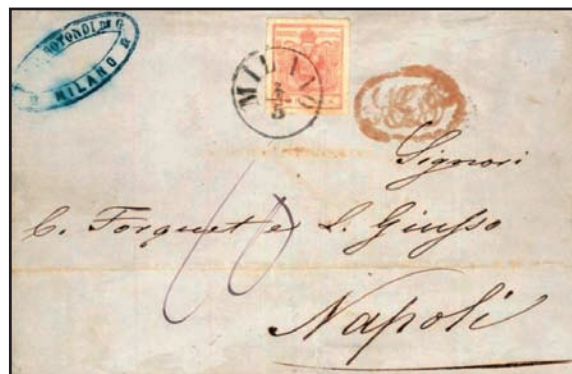 ROTONDI DI G
MILANO
MILANO
Signori
C. Forquet e L. Giusso
Napoli